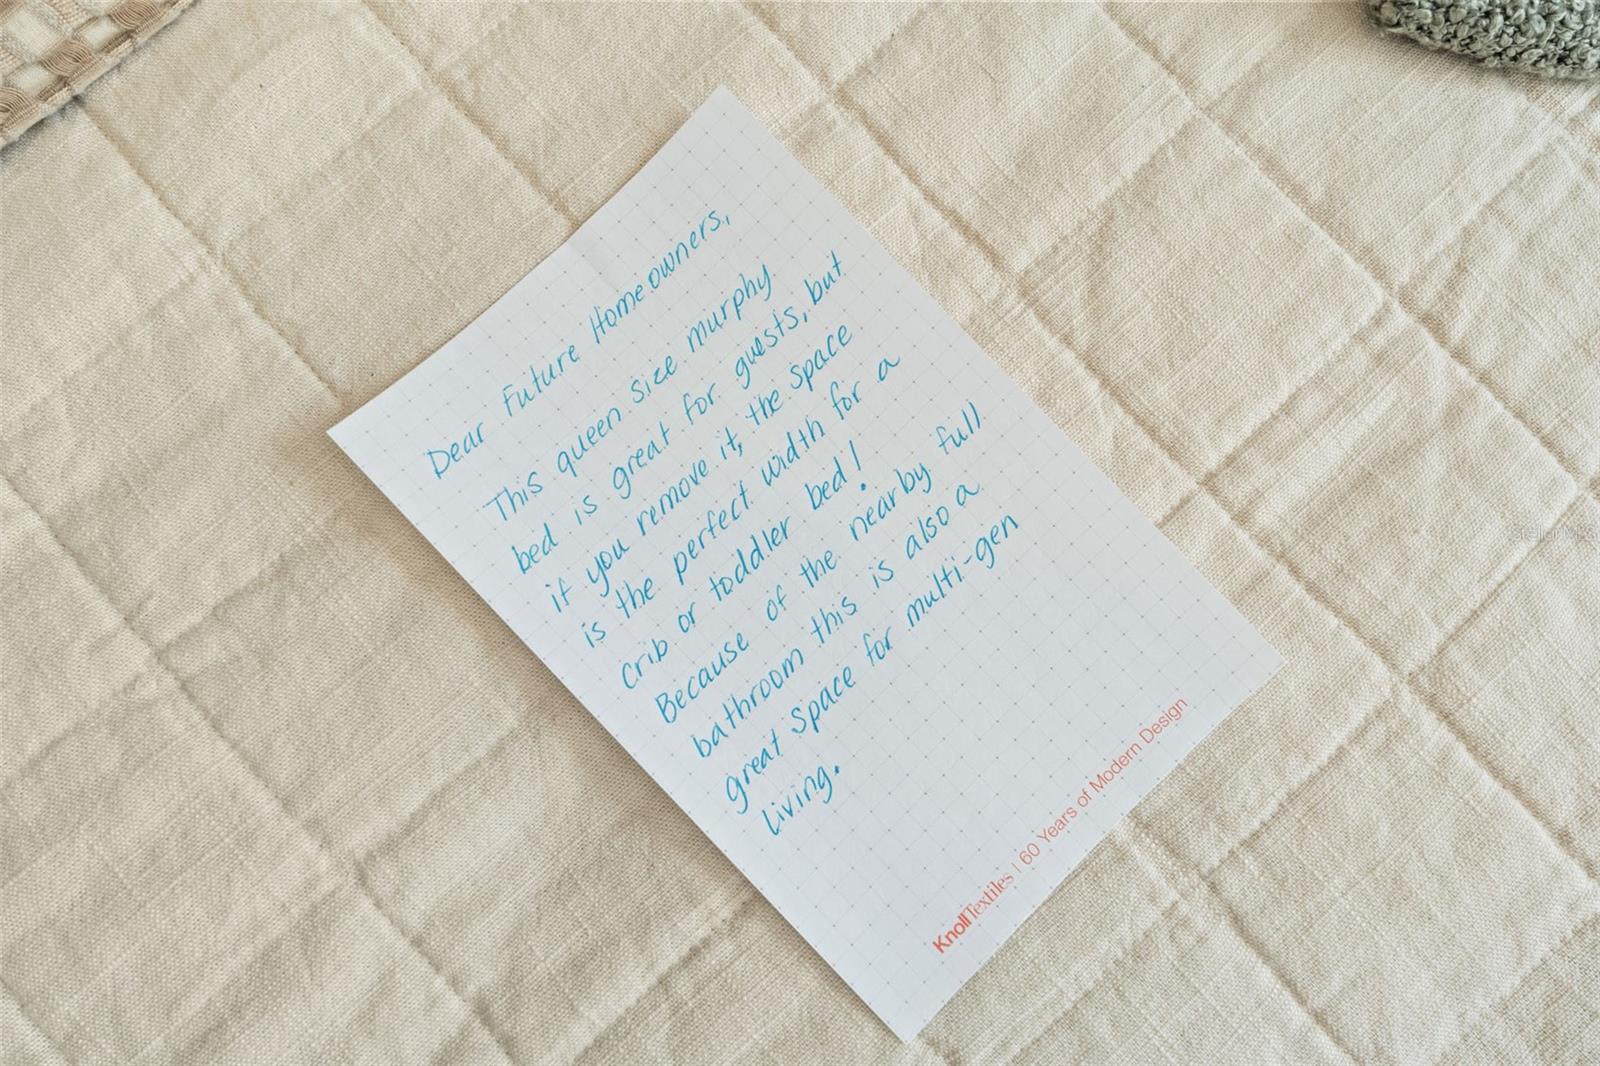 Dear Future Homeowners,
This queen size murphy
bed is great for guests, but
if you remove it, the space
is the perfect width for a
crib or toddler bed!
Because of the nearby full
bathroom this is also a
great space for multi-gen
living.
KnollTextiles | 60 Years of Modern Design